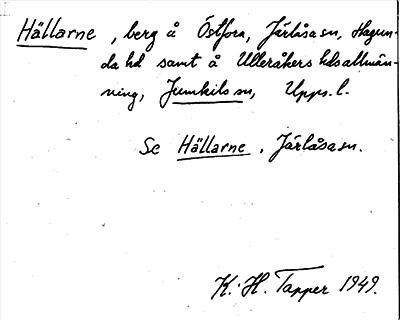 Hällarne, berg å Östfora, Järlåsa sn, Hagun-
da hd samt å Ulleråkers hds allmän-
ning, Jumkils sn, Upps. l.
Se Hällarne, Järlåsa sn.
K. H. Tapper 1949.